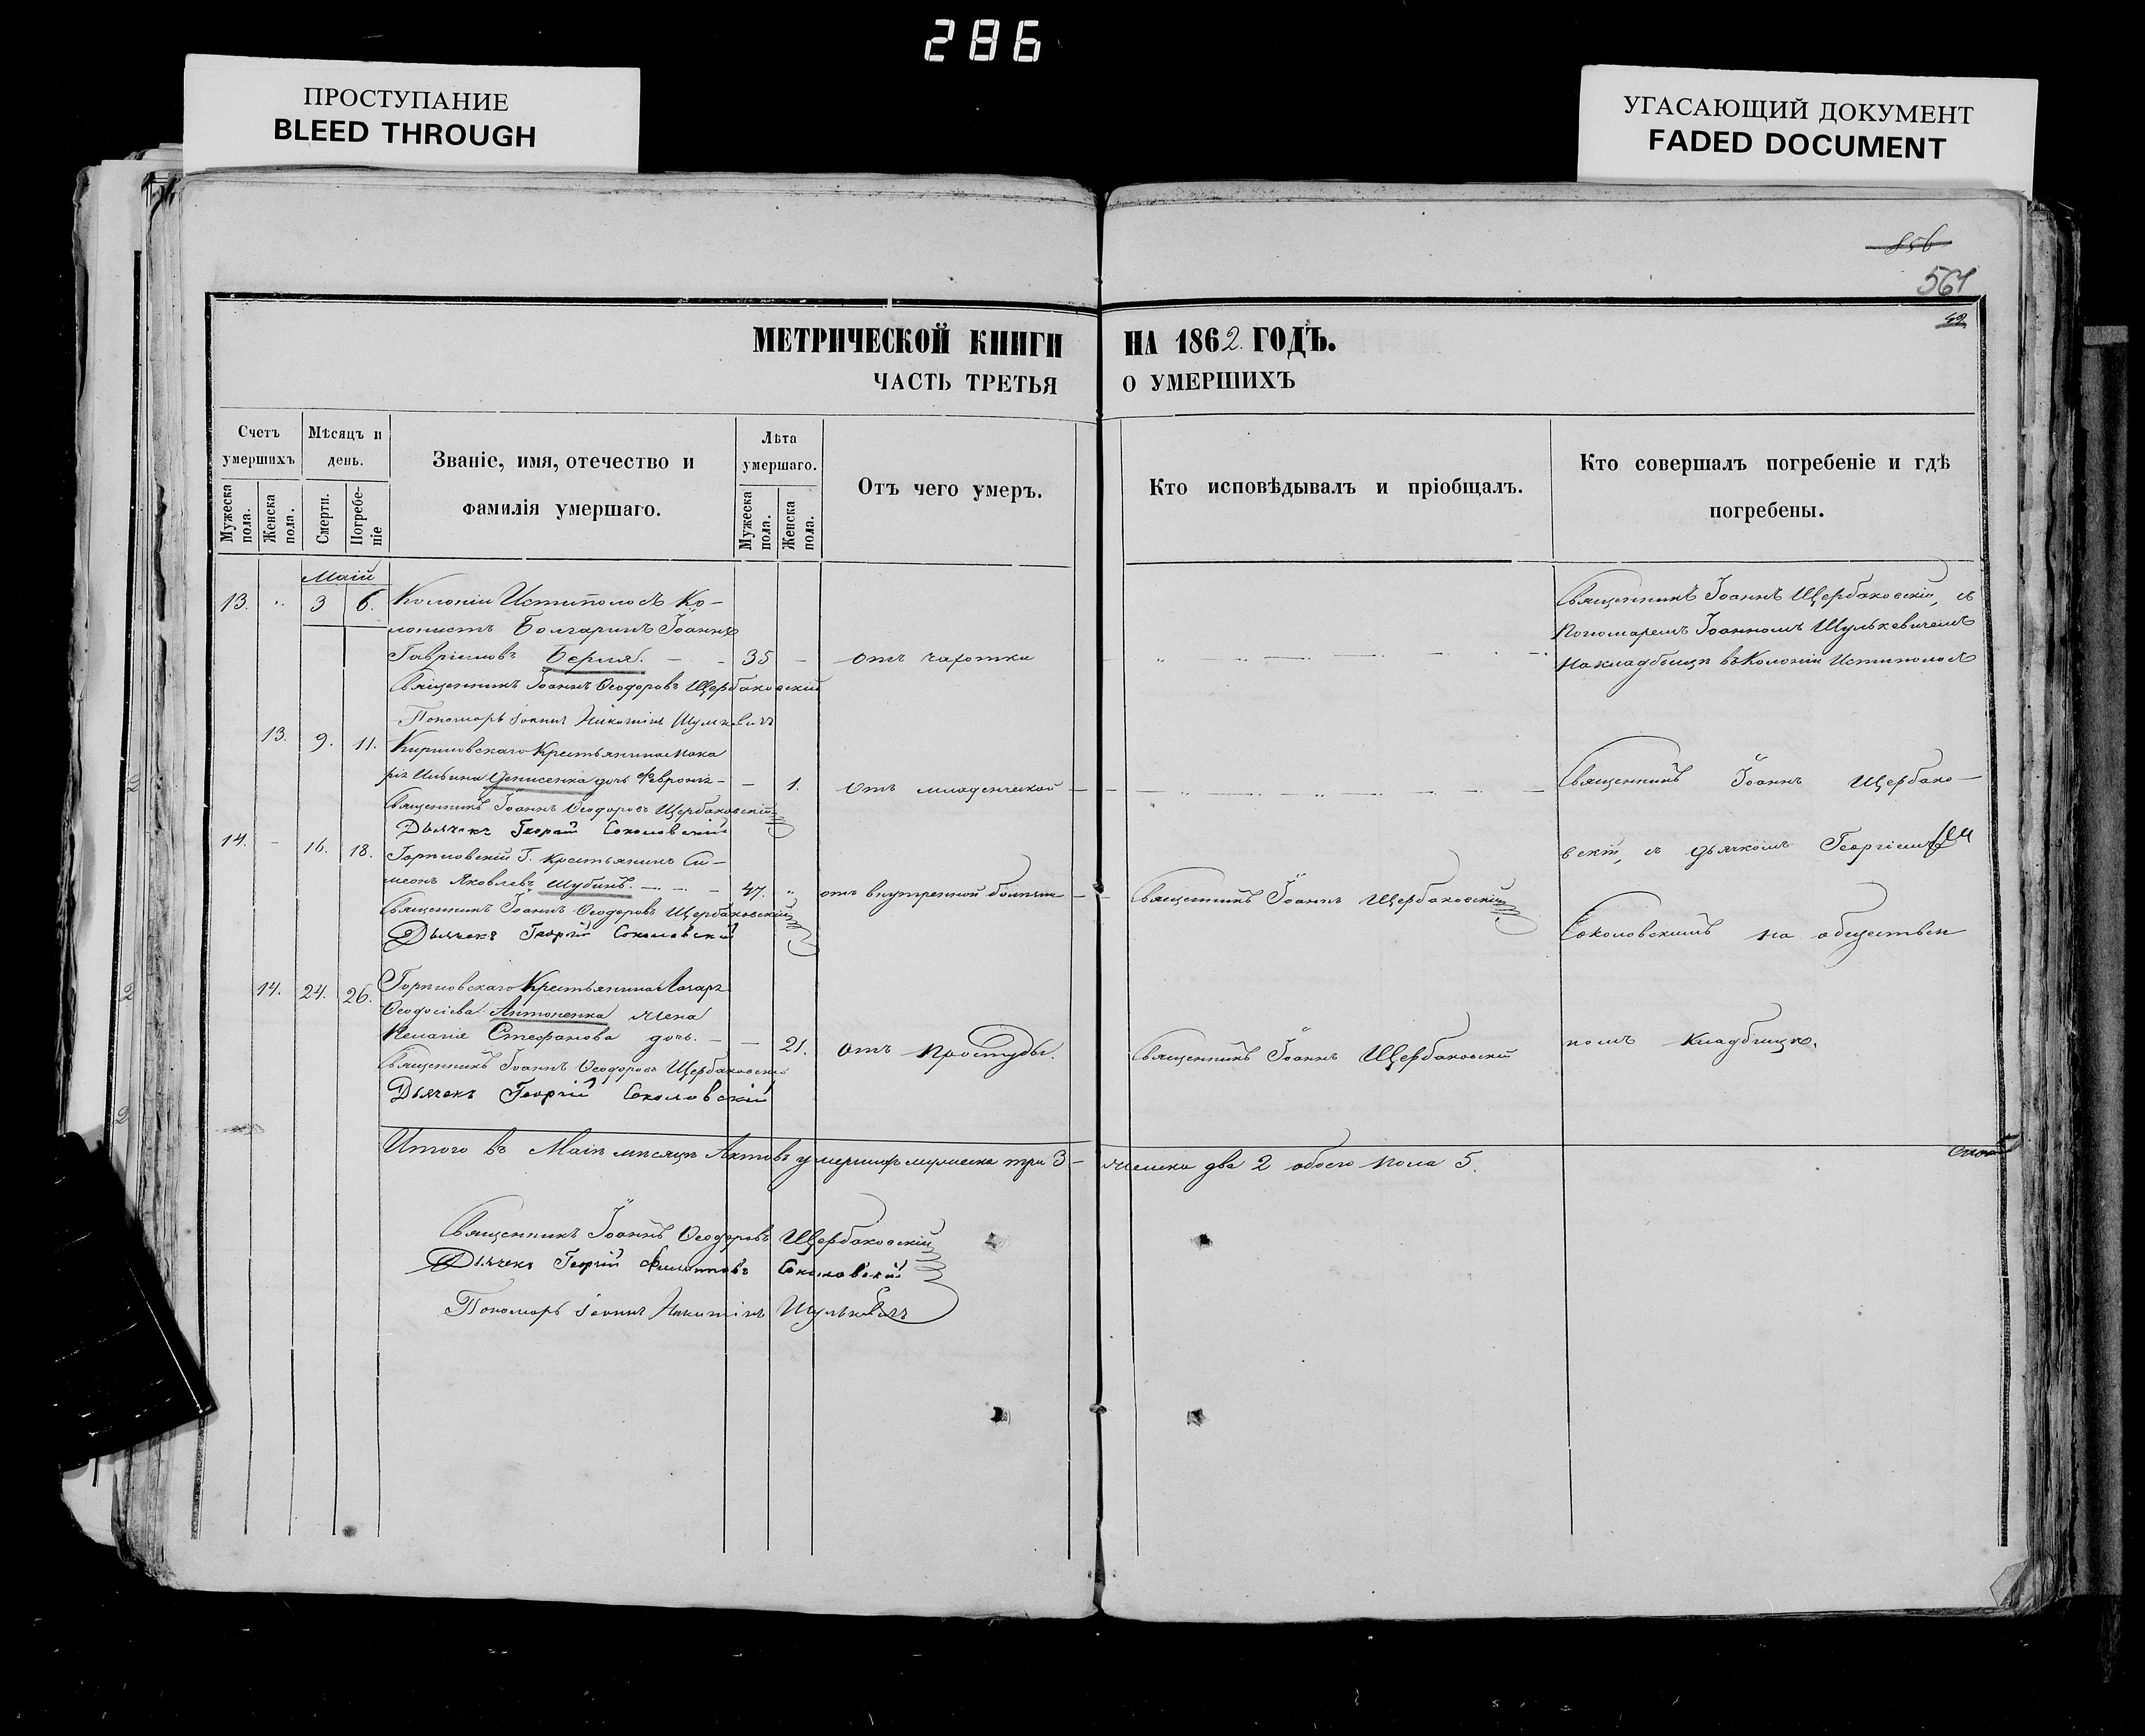 286
ПРОСТУПАНИЕ
BLEED THROUGH
УГАСАЮЩИЙ ДОКУМЕНТ
FADED DOCUMENT
856
561
42
МЕТРИЧЕСКОЙ КНИГИ НА 1862. ГОДЪ.
ЧАСТЬ ТРЕТЬЯ О УМЕРШИХЪ
Счетъ умершихъ
Мужеска пола.
Женска пола.
Мѣсяцъ и день.
Смерти.
Погребеніе
Званіе, имя, отечество и
фамилія умершаго.
Лѣта умершаго.
Мужеска пола.
Женска пола.
Отъ чего умеръ.
Кто исповѣдывалъ и пріобщалъ.
Кто совершалъ погребеніе и гдѣ
погребены.
Маій
13. 3 6. Колоніи Ко-
лонистъ Болгаринъ Іоаннъ
Гавріиловъ 35 Отъ чахотки
Священникъ Іоаннъ Ѳеодоровъ Щербаковскій
Пономарь Іоаннъ Никитинъ Шулкевичъ
Священникъ Іоаннъ Щербаковскій, съ
Пономаремъ Іоанномъ Шулькевичемъ
на кладбищѣ въ Колоніи
13. 9. 11. Крестьянина Мака
рія Ильина Денисенка дочь Февронія 1. Отъ младенческой
Священникъ Іоаннъ Ѳеодоровъ Щербаковскій
Дьячекъ Георгій Соколовскій
Священникъ Іоаннъ Щербако-
14. 16. 18. Крестьянинъ Си-
меонъ Яковлевъ Шубинъ. 47. отъ внутренной болѣзни
Священникъ Іоаннъ Щербаковскій
Священникъ Іоаннъ Ѳеодоровъ Щербаковскій
Дьячекъ Георгій Соколовскій
вскій, съ дьячкомъ Георгіемъ
Соколовскимъ на обществен
14. 24. 26. Крестьянина Лазаря
Ѳеодосіева Антоненка жена
Пелагія Стефанова дочь. 21. Отъ простуды.
Священникъ Іоаннъ Щербаковскій
Священникъ Іоаннъ Ѳеодоровъ Щербаковскій
Дьячекъ Георгій Соколовскій
номъ кладбищѣ.
Итого въ Маіѣ мѣсяцѣ Актовъ умершихъ мужеска три 3 – женска два 2 обоего пола 5.
Священникъ Іоаннъ Ѳеодоровъ Щербаковскій
Дьячекъ Георгій Филипповъ Соколовскій
Пономарь Іоаннъ Никитинъ Шулькевичъ